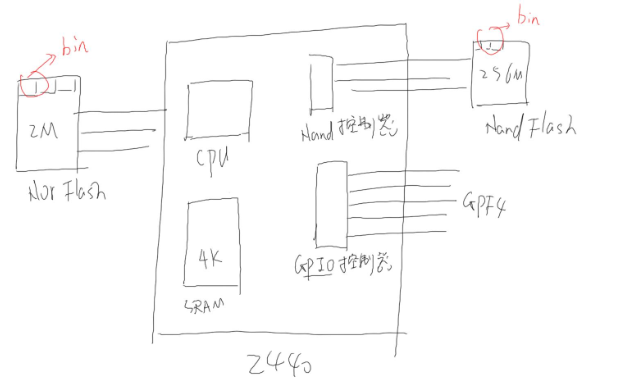 bin
2M
Nor Flash
CPU
4K
SRAM
Nand控制器
GPIO控制器
bin
256M
Nand Flash
GPF4
2440